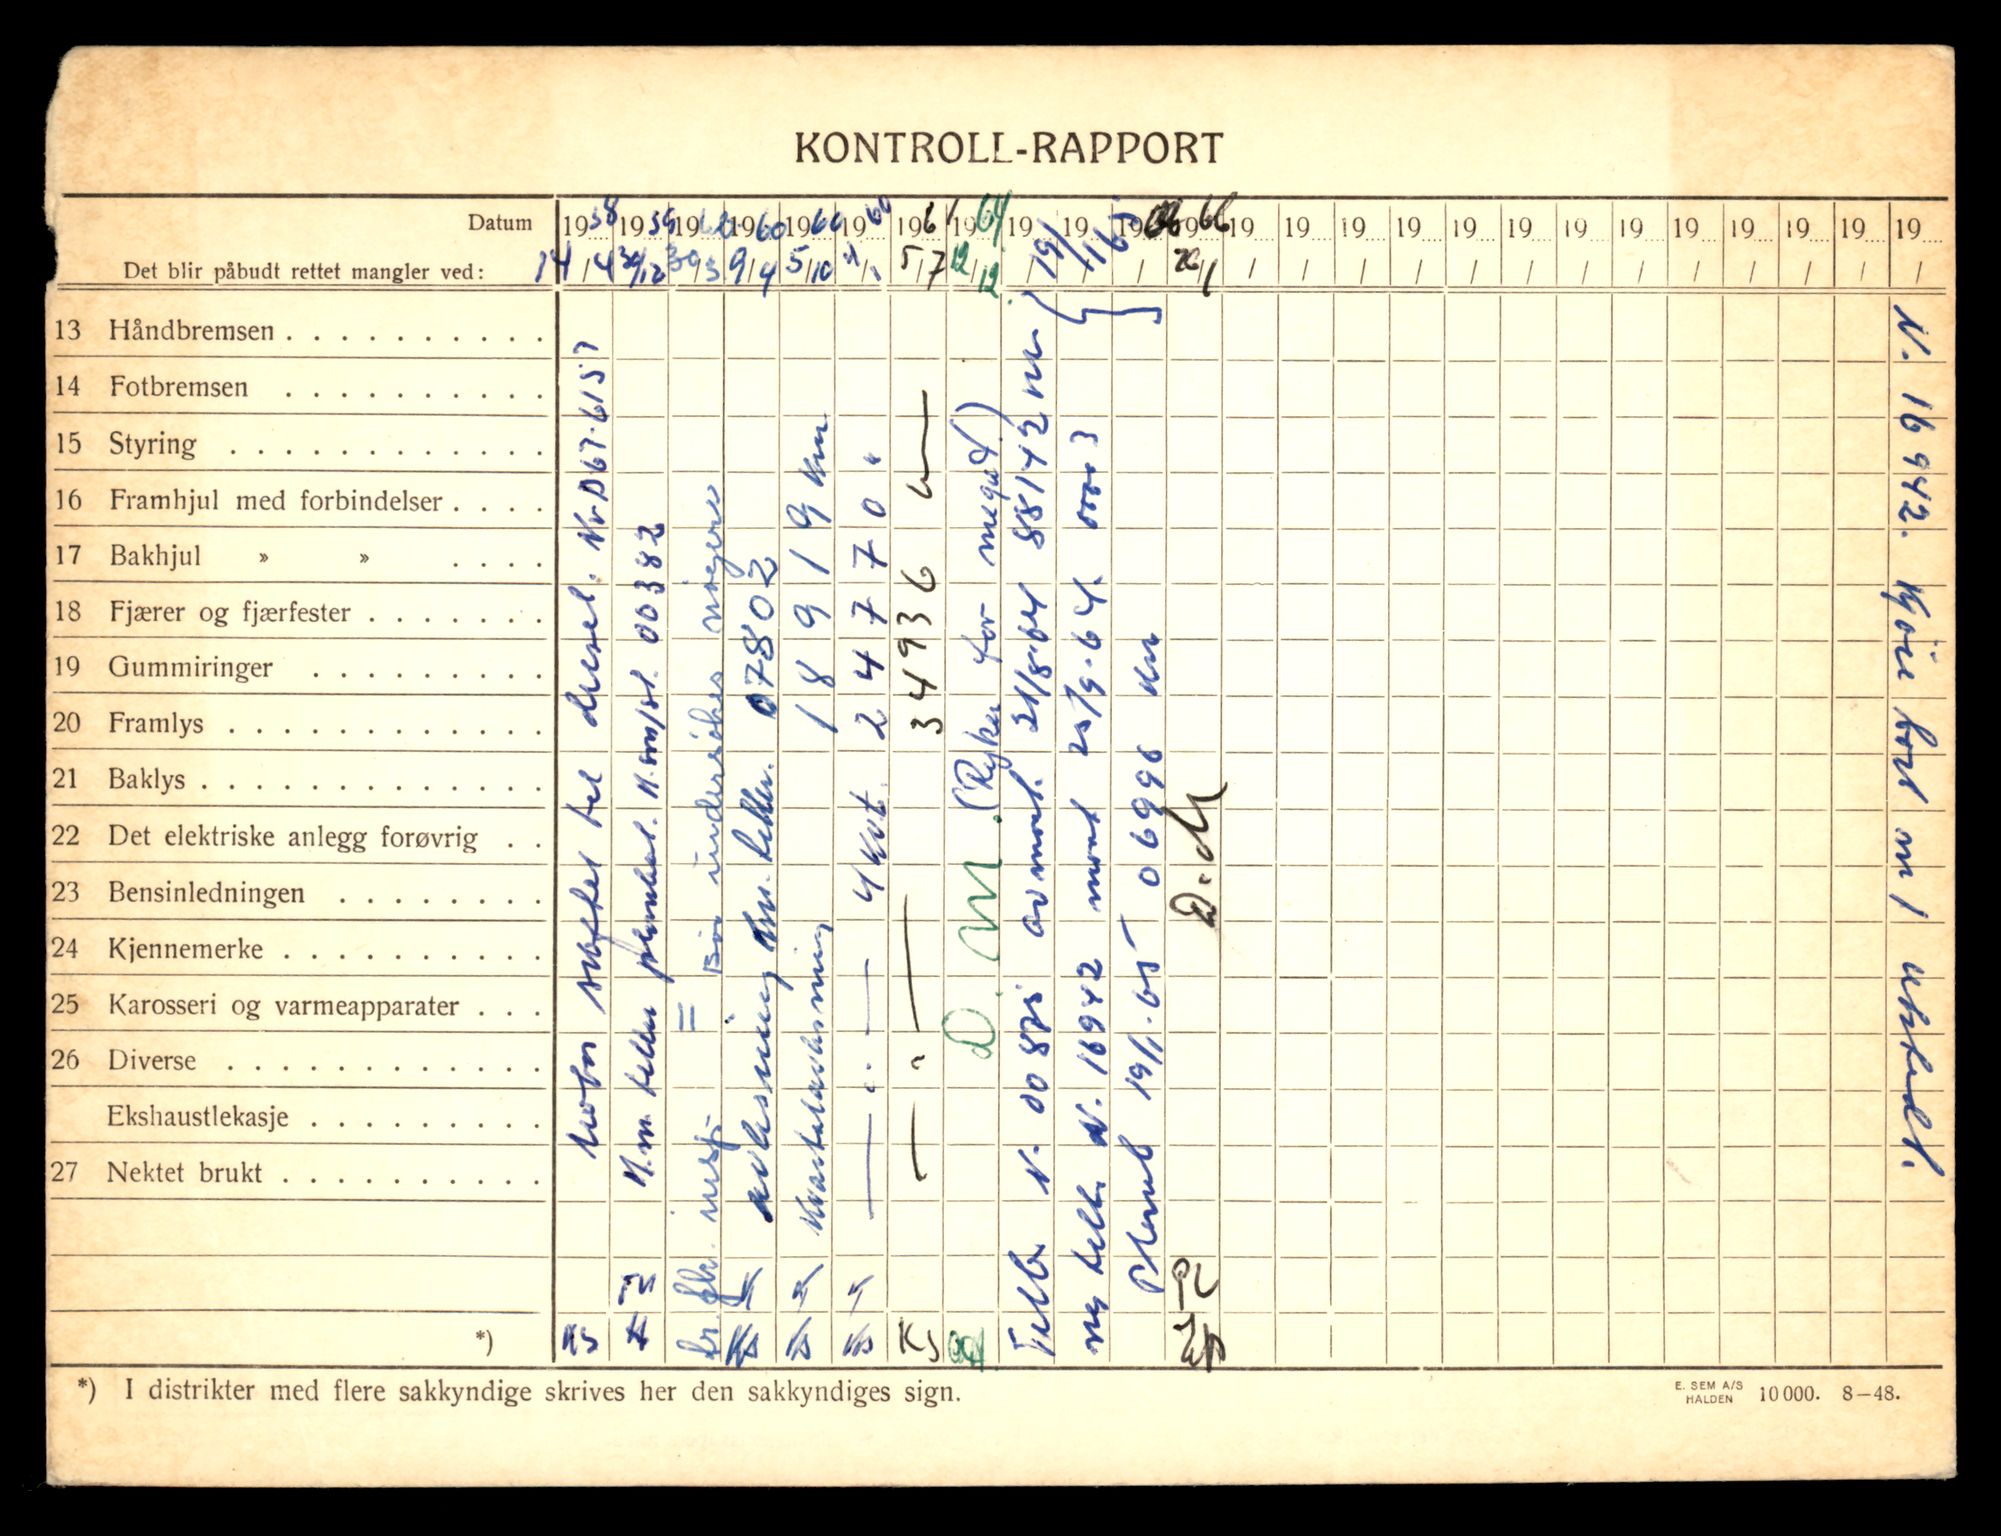 KONTROLL-RAPPORT
Datum 1958 1959 1960 1960 1960 1960 1961 1964 19 19 19 1966 19 19 19 19 19 19 19 19 19 19 19 19 19
Det blir påbudt rettet mangler ved: 14/4 30/12 30/3 9/4 5/10 5/7 12/12 19/1 65 20/1
13 Håndbremsen
14 Fotbremsen
15 Styring
16 Framhjul med forbindelser
17 Bakhjul » »
18 Fjærer og fjærfester
19 Gummiringer
20 Framlys
21 Baklys
22 Det elektriske anlegg forøvrig
23 Bensinledningen
24 Kjennemerke
25 Karosseri og varmeapparater
26 Diverse
Ekshaustlekasje
27 Nektet brukt
*)
Motor skiftet til diesel. Nr D67.6157
K.m. teller plombert. 00382
Bør undersøkes nøyere
Avlesning km. teller. 07802
Kvartalavlesning 18919 km
4 kvt. 24770 "
34936
D. M. (Ryker for meget)
Tellb. N. 00871 avmont. 21/8.64 88142 km
ny tellb. N. 16942 mont 25/9.64. 00003
Plomb 19/1.65 06996 km
D.M
N. 16942. Kjøie bort m/ utstedt.
KS
KS
KS
KS
KS
*) I distrikter med flere sakkyndige skrives her den sakkyndiges sign.
E. SEM A/S
HALDEN
10 000. 8—48.